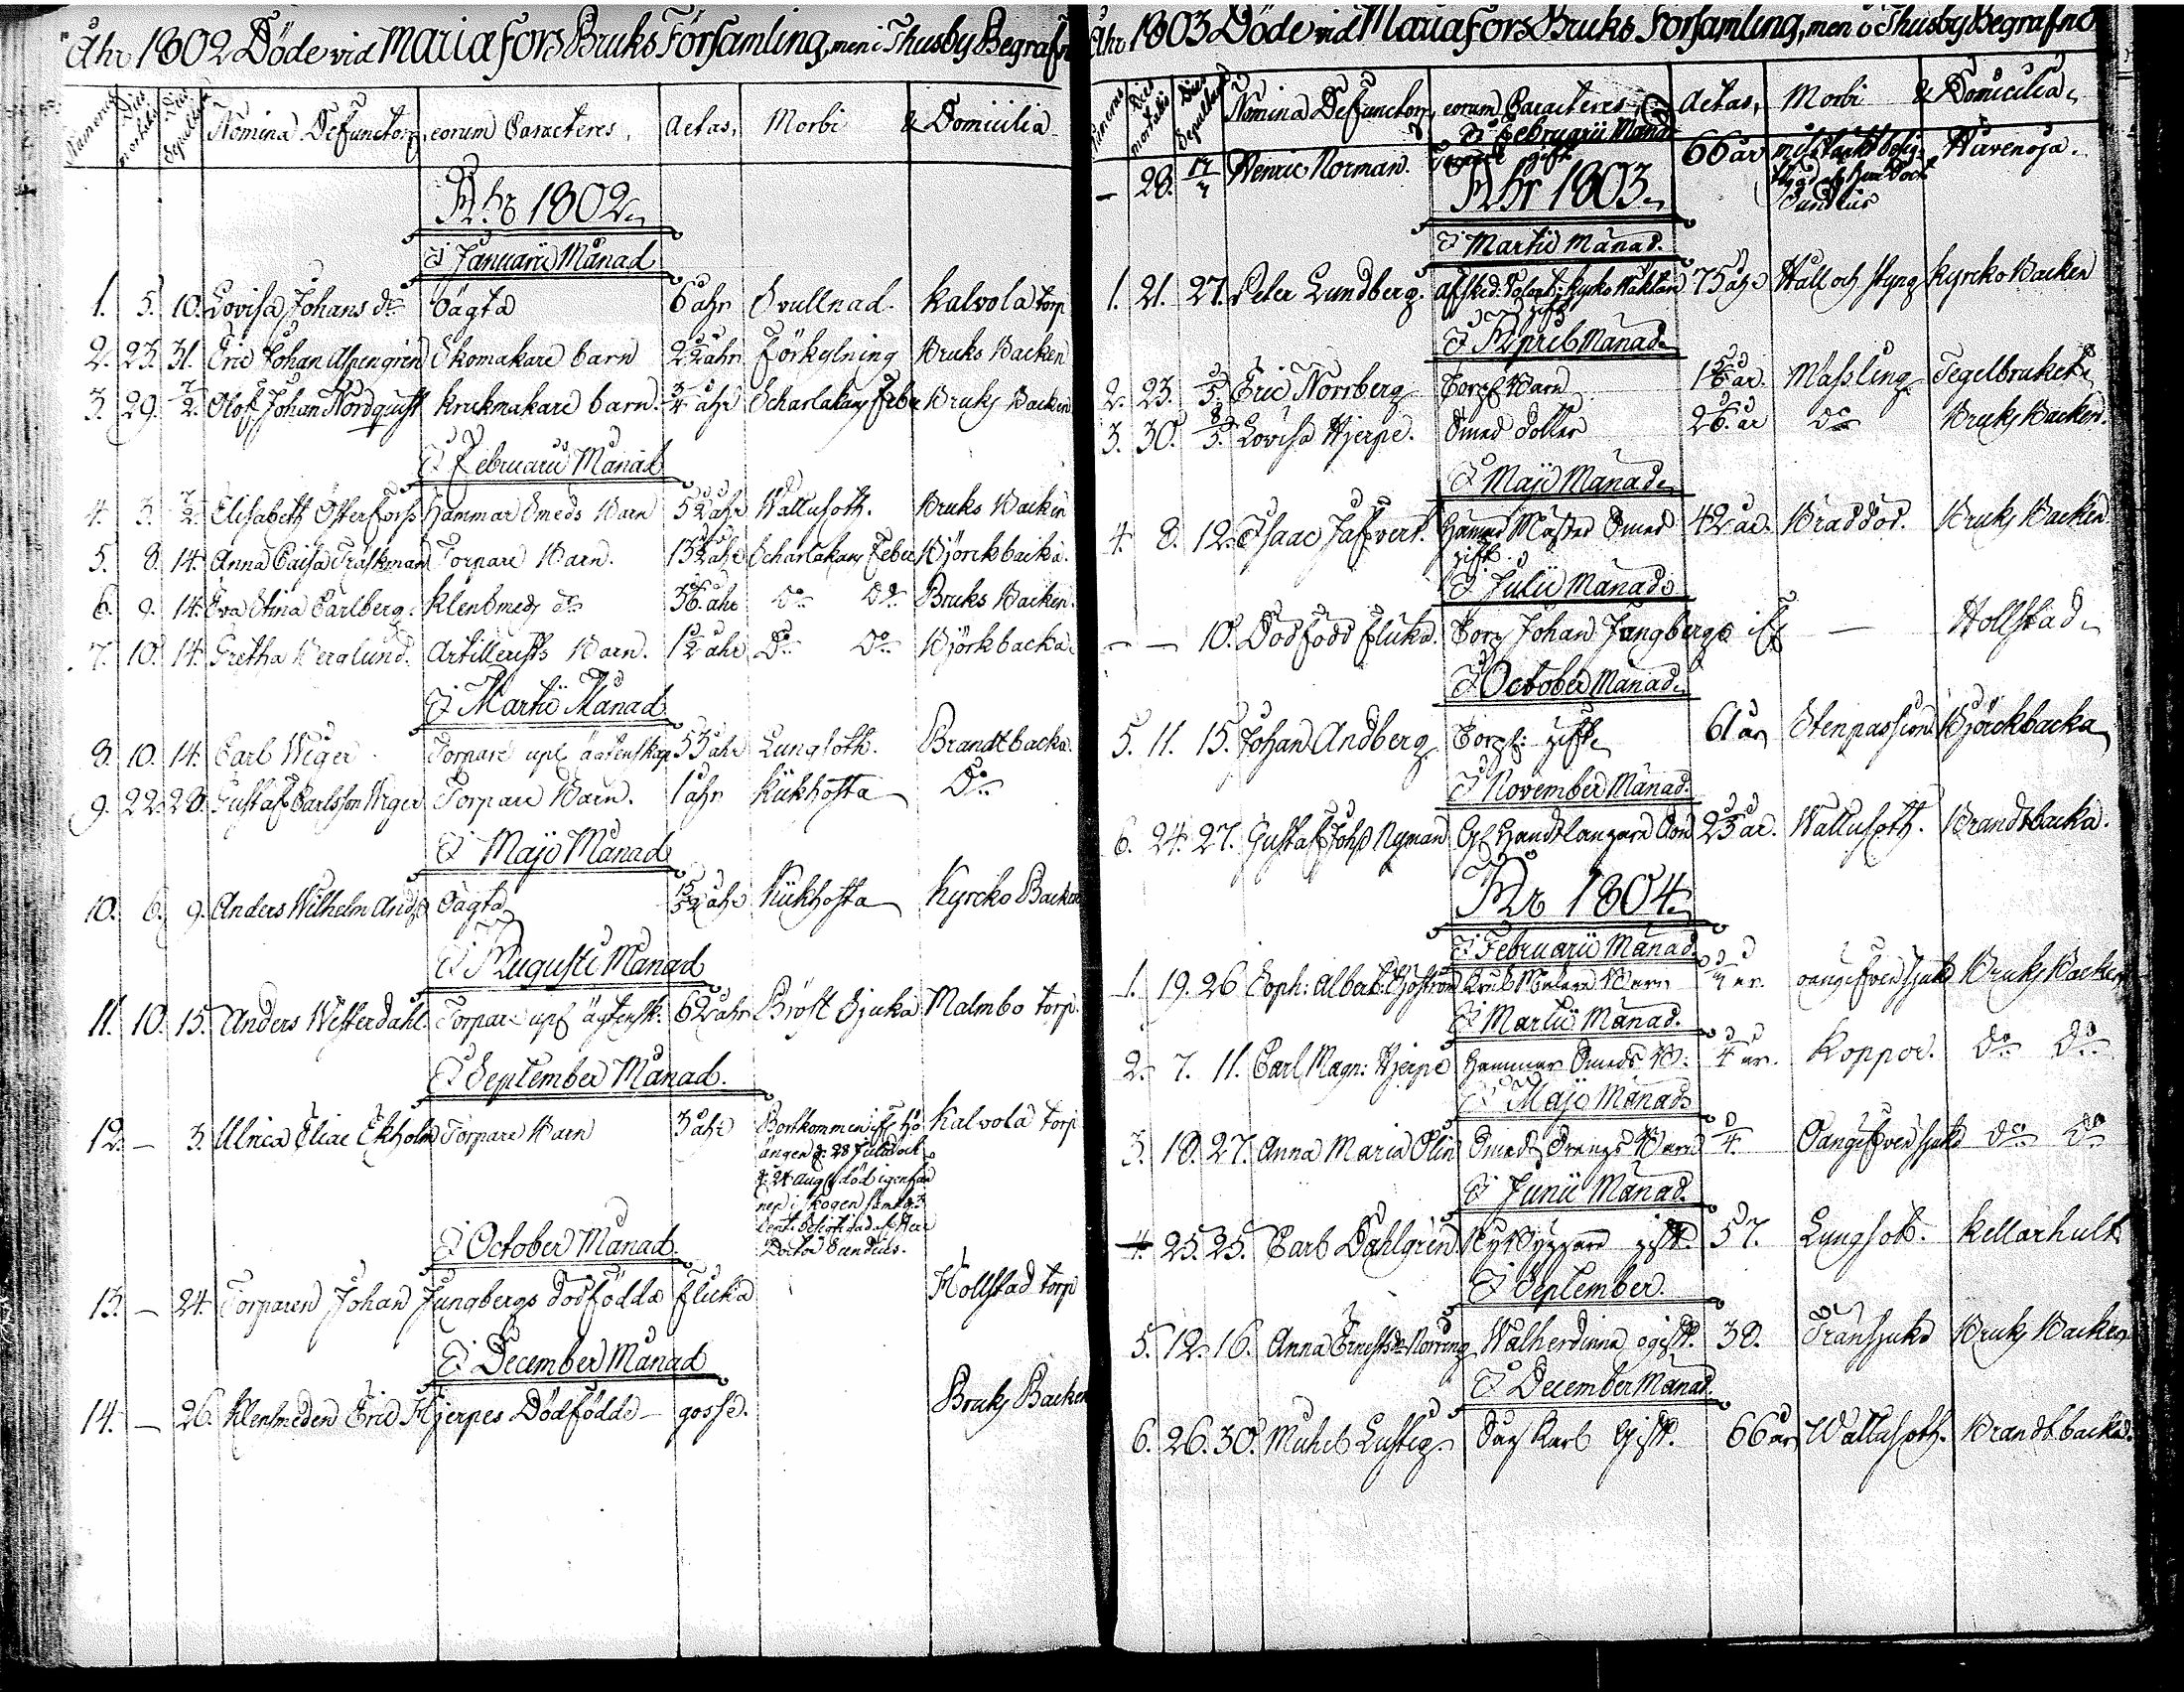 Åhr 1802 Döde vid Mariæfors Bruks Församling, men i Thusby Begrafn
Numerus Dies mortalis Dies Sepulturæ Nomina Defunctor, eorum Caracteres, Aetas, Morbi & Domicilia
Åhr 1802
I Januarii Månad
1. 5. 10. Lovisa Johans dr oägta 6 åhr Svullnad. Kalvola torp
2. 23. 31. Eric Johan Alpengren Skomakare barn 2½ åhr Förkylning Bruks Backen
3. 29. 7/2. Olof Johan Nordquist Krukmakare barn. ¾ åhr Scharlakans Feber Bruks Backen
I Februarii Månad
4. 3. 7/2. Elisabeth Österfors Hammar Smeds Barn 5½ åhr Vattusoth. Bruks Backen
5. 8. 14. Anna Caisa Träskman Torpare Barn. Scharlakans Feber Björckbacka.
6. 9. 14. Eva Stina Carlberg. Klensmeds do do do Bruks Backen.
7. 10. 14. Gretha Berglund. Artillerists Barn. 1½ åhr Do Do Björkbacka.
I Martii Månad
8. 10. 14. Carl Weger Torpare upl ägtenskap 53 åhr Lungsoth. Brandtbacka.
9. 22. 28. Gustaf Carlsson Weger Torpare Barn. 1 åhr Kikhosta Do
I Maji Månad
10. 6. 9. Anders Wilhelm Ands. Oägta Kikhosta Kyrcko Backen
I Augusti Månad
11. 10. 15. Anders Westerdahl. Torpare upl ägtensk. 62 åhr Bröst Sjuka Malmbo torp.
I September Månad.
12. — 3. Ulrica Eliae Ekholm Torpare Barn 3 åhr Bortkommen Kalvola torp
ängen d. 28 Julii och
d. 24 Aug. död igenfun
nen i skogen samt d. 3
Sept. besigtigad af Herr
Doctor Sundius.
I October Månad.
13. — 24. Torparen Johan Jungbergs dödfödda Flicka Hollstad torp
I December Månad
14. — 26. Klensmeden Eric Hjerpes Dödfödde — gosse. Bruks Backen
Åhr 1803 Döde vid Mariæfors Bruks Församling, men i Thusby Begrafne
Numerus Dies mortalis Dies Sepulturæ Nomina Defunctor, eorum Caracteres, Aetas, Morbi & Domicilia
I Februarii Månad
— 28. Henric Norman. gift 66 år Hävenoja.
Åhr 1803
I Martii Månad.
1. 21. 27. Peter Lundberg. Kyrko Wäktare 75 åhr Håll och styng Kyrcko Backen
gift
I April Månad
2. 23. Eric Norrberg Torp. Barn Massling Tegelbruket
3. 30. 8/5. Lovisa Hjerpe. Smed dotter do Bruks Backen.
I Maji Månad
4. 8. 12. Isaac Jafvert. Hammar Mäster Smed 42 år. Bråddöd. Bruks Backen
gift.
I Julii Månad
— — 10. Dödfödd flicka. Torp Johan Jungbergs — Hollstad
I October Månad
5. 11. 15. Johan Andberg. Torp: gift 61 år Stenpassion Björckbacka
I November Månad.
6. 24. 27. Gustaf Johs Nyman Handtlangare Son Vattusoth. Brandtbacka.
År 1804
I Februarii Månad
1. 19. 26 Soph: Albert: Barn oangifven sjukd Bruks Backen
I Martii Månad.
2. 7. 11. Carl Magn: Hjerpe Hammar Smeds B: Koppor. do do
I Maji Månad
3. 18. 27. Anna Maria Olin Smeds Drengs Barn Oangifven sjukd do do
I Junii Månad.
4. 25. 25. Carl Dahlgren gift. 57. Lungsot. Kellarhult
I September.
5. 12. 16. Anna Ernests dr Norring Walherdinna ogift. 38. Tränsjuka Bruks Backen
I December Månad.
6. 26. 30. Michel Lustig Såg Karl Gift. 66 år Vattusoth. Brandtbacka.